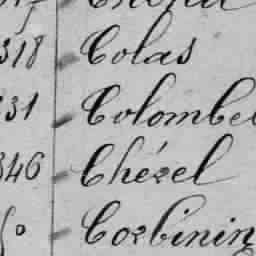 318 Colas
331 Colombel
346 Chézel
Corbinin